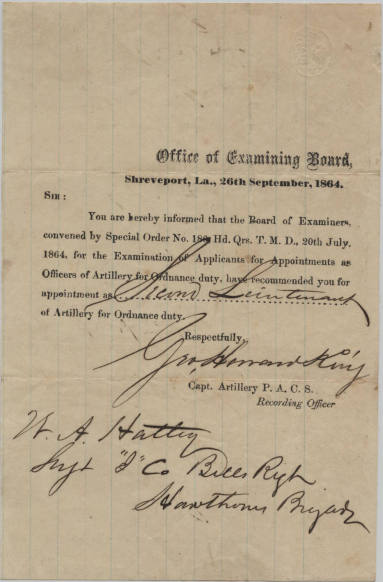 Office of Examining Board,
Shreveport, La., 26th September, 1864.
SIR :
You are hereby informed that the Board of Examiners,
convened by Special Order No. Hd. Qrs. T. M. D., 20th July,
1864, for the Examination of Applicants for Appointments as
Officers of Artillery for Ordnance duty, have recommended you for
appointment as Second Lieutenant
of Artillery for Ordnance duty.
Respectfully,
Geo, Howard King
Capt. Artillery P. A. C. S.
Recording Officer
W. A. Hatley
Sergt "I" Co Bells Regt
Hawthorns Brigade